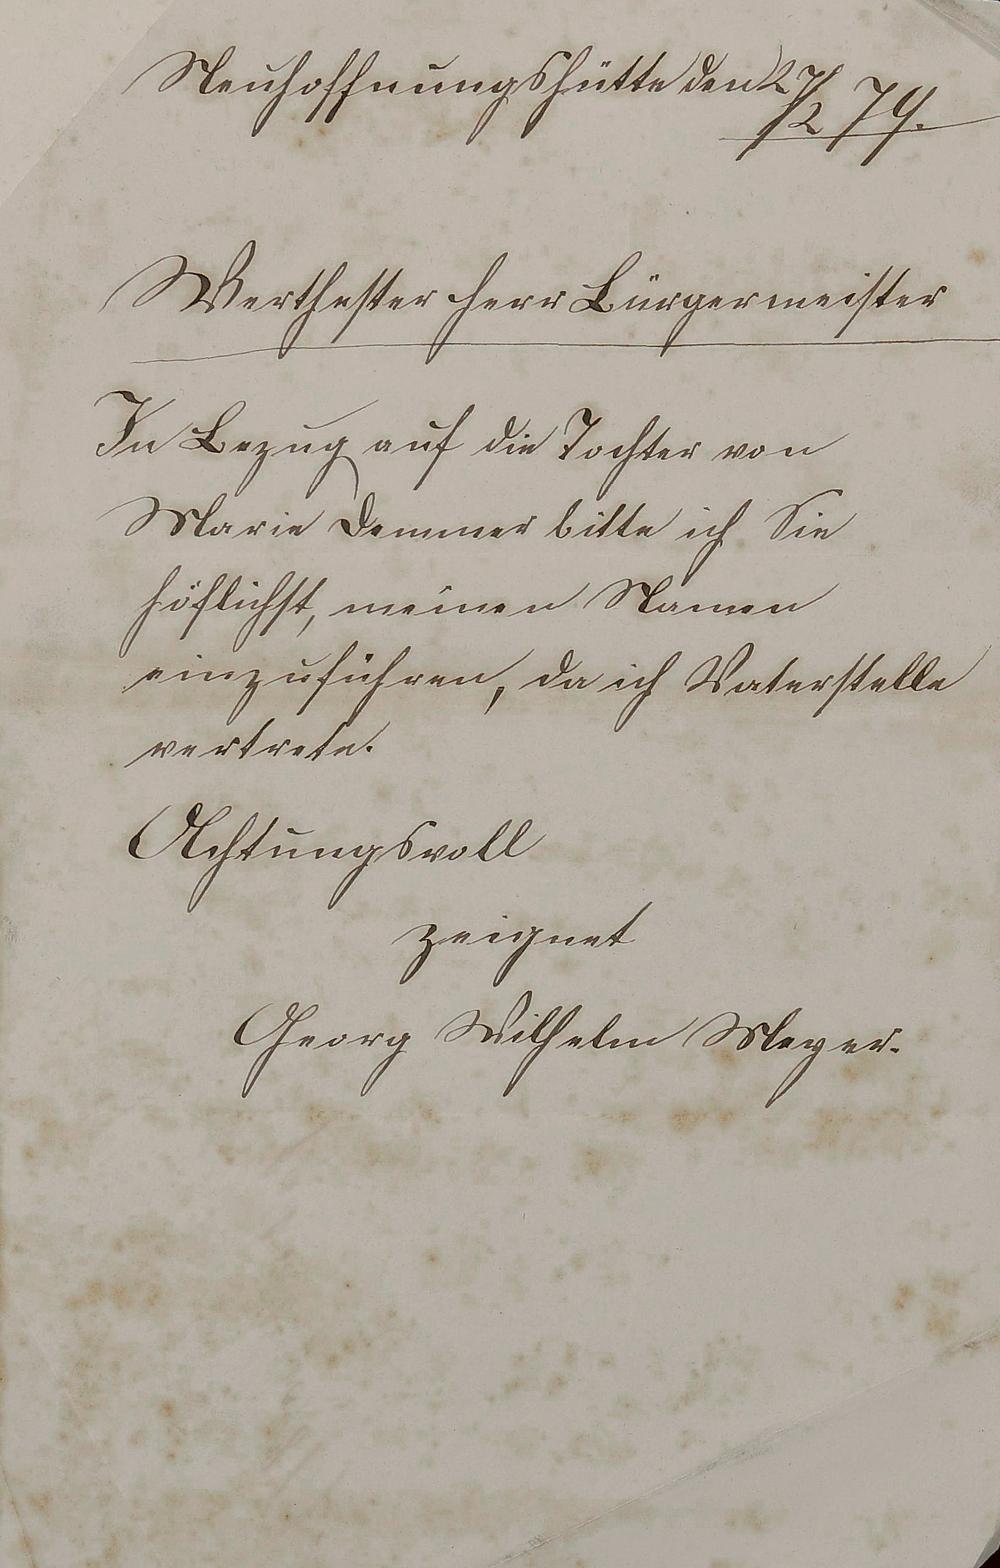 Neuhoffnungshütte den 27/12 79.
Werthester Herr Bürgermeister
In Bezug auf die Tochter von
Marie Demmer bitte ich Sie
höflichst, meinen Namen
einzuführen, da ich Vaterstelle
vertrete.
Achtungsvoll
zeignet
Georg Wilhelm Meyer.